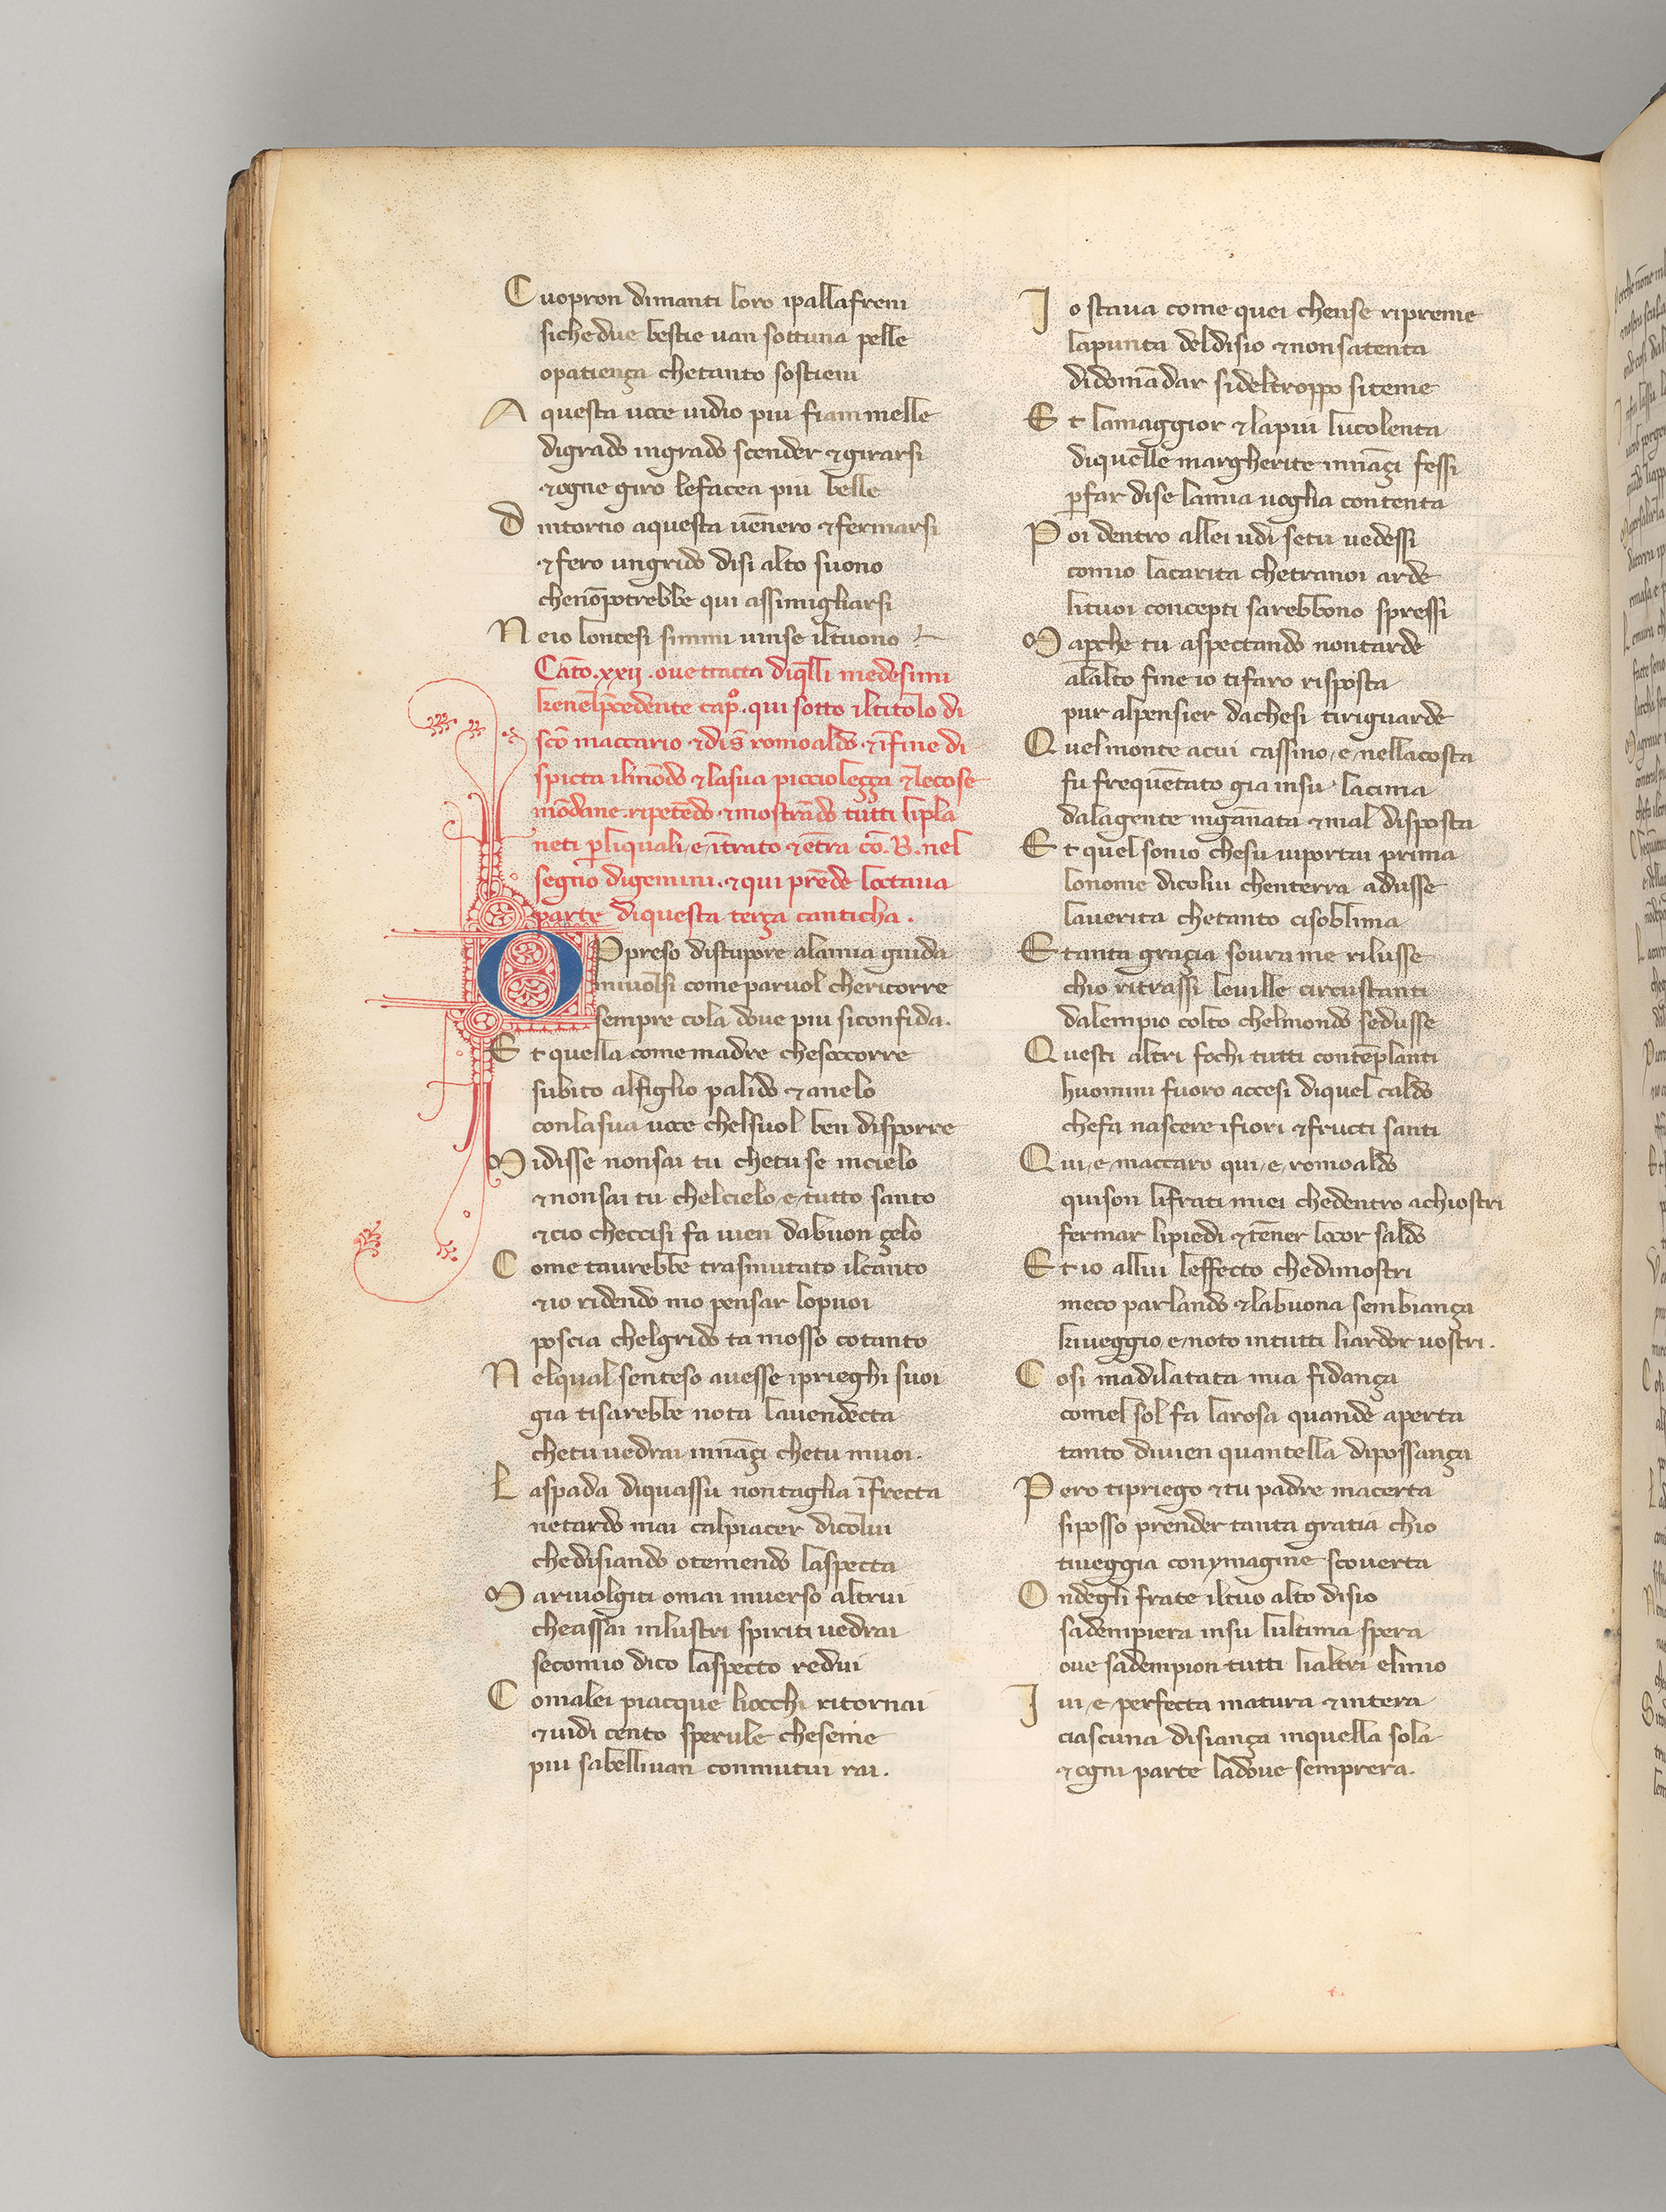 Cuopron dimanti loro ipallafreni
siche due bestie uan sottuna pelle
opatiença chetanto sostieni
A questa uoce uidio piu fiammelle
digrado ingrado scender ⁊ girarsi
⁊ogne giro lefacea piu belle
Dintorno aquesta uēnero ⁊fermarsi
⁊fero ungrido disi alto suono
chenōpotrebbe qui assimigliarsi
Neio lontesi simmi uinse iltuono
Cāto .xxij. oue tracta diq̄lli medesimi
kenelp̄cedente cap̊. qui sotto iltitolo di
scō maccario ⁊dis̄ romoaldo. ⁊īfine di
spicta ilmōdo ⁊lasua picciolezza ⁊lecose
mōdane. ripetēdo ⁊mostrādo tutti lipla
neti p̱liquali, e, ītrato ⁊ētra cō. B. nel
segno digemini. ⁊qui prēde loctaua
parte diquesta terça canticha.
OPpreso distupore alamia guida
miuolsi come paruol chericorre
sempre cola doue piu siconfida.
Et quella come madre chesoccorre
subito alfiglio palido ⁊anelo
conlasua uoce chelsuol ben disporre
Midisse nonsai tu chetuse incielo
⁊nonsai tu chelcielo, e, tutto santo
⁊cio checcisi fa uien dabuon çelo
Come taurebbe trasmutato ilcanto
⁊io ridendo mo pensar lopuoi
poscia chelgrido ta mosso cotanto
Nelqual senteso auesse iprieghi suoi
gia tisarebbe nota lauendecta
chetu uedrai innāçi chetu muoi.
Laspada diquassu nontaglia īfrecta
netardo mai calpiacer dicolui
chedisiando otemendo laspecta
Mariuolgiti omai inuerso altrui
cheassai inlustri spiriti uedrai
secomio dico laspecto redui
Comalei piacque liocchi ritornai
⁊uidi cento sperule cheseme
piu sabelliuan conmutui rai.
Io staua come quei chense ripreme
lapunta deldisio ⁊nonsatenta
didomādar sideltroppo siteme
Et lamaggior ⁊lapiu luculenta
diquelle margherite innāçi fessi
p̱far dise lamia uoglia contenta
Poi dentro allei udi setu uedessi
comio lacarita chetranoi arde
lituoi concepti sarebbono spressi
Map̱che tu aspectando nontarde
alalto fine io tifaro risposta
pur alpensier dachesi tiriguarde
Quelmonte acui cassino, e, nellacosta
fu frequētato gia insu lacima
dalagente ingānata ⁊mal disposta
Et quel sonio chesu uiportai prima
lonome dicolui chenterra adusse
lauerita chetanto cisoblima
Etanta graçia soura me rilusse
chio ritrassi leuille circustanti
dalempio colto chelmondo sedusse
Questi altri fochi tutti contēplanti
huomini fuoro accesi diquel caldo
chefa nascere ifiori ⁊fructi santi
Qui, e, maccaro qui, e, romoaldo
quison lifrati miei chedentro achiostri
fermar lipiedi ⁊tēner locor saldo
Et io allui leffecto chedimostri
meco parlando ⁊labuona sembiança
kiueggio, e, noto intutti liardor uostri.
Cosi madilatata mia fidança
comel sol fa larosa quande aperta
tanto diuien quantella dipossança
Pero tipriego ⁊tu padre macerta
siposso prender tanta gratia chio
tiueggia conymagine scouerta
Ondegli frate iltuo alto disio
sadempiera insu lultima spera
oue sadempion tutti lialtri elmio
Iui, e, perfecta matura ⁊intera
ciascuna disiança inquella sola
⁊ogni parte ladoue semprera.